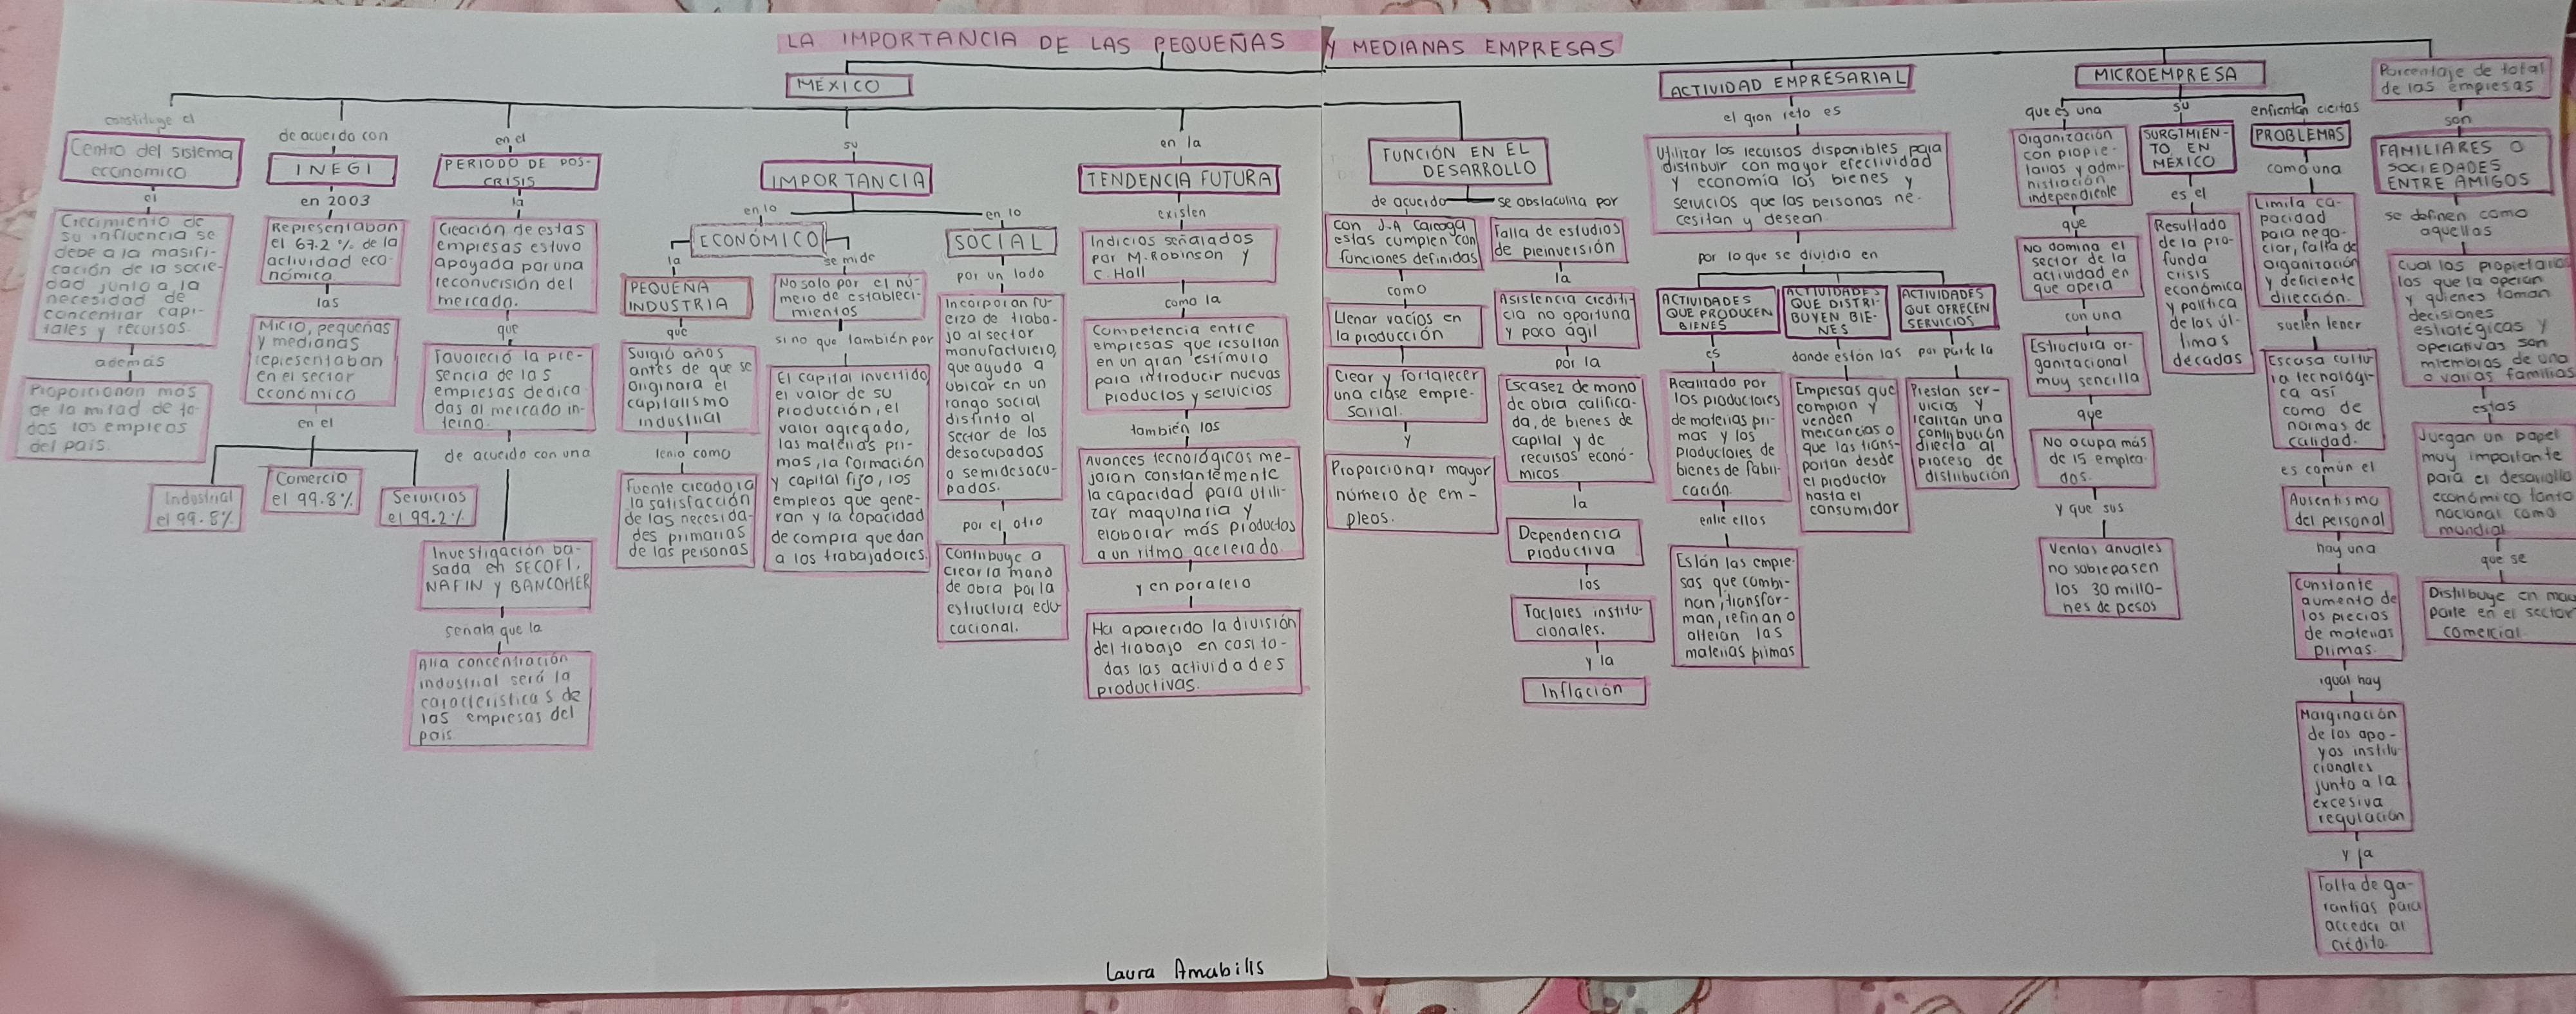 LA IMPORTANCIA DE LAS PEQUEÑAS Y MEDIANAS EMPRESAS
MÉXICO
constituye el
Centro del sistema
económico
el
Crecimiento de
su influencia se
debe a la masifi-
cación de la socie-
dad junto a la
necesidad de
concentrar capi-
tales y recursos.
además
Proporcionan más
de la mitad de to-
dos los empleos
del país.
de acuerdo con
INEGI
en 2003
Representaban
el 67.2% de la
actividad eco-
nómica
las
Micro, pequeñas
y medianas
representaban
en el sector
económico
en el
Industrial
el 99.8%
Comercio
el 99.8%
Servicios
el 99.2%
en el
PERIODO DE POS-
CRISIS
la
Creación de estas
empresas estuvo
apoyada por una
reconversión del
mercado.
que
Favoreció la pre-
sencia de las
empresas dedica-
das al mercado in-
terno.
de acuerdo con una
Investigación ba-
sada en SECOFI,
NAFIN y BANCOMER
señala que la
Alta concentración
industrial será la
características de
las empresas del
país
su
IMPORTANCIA
en lo
ECONÓMICO
la
PEQUEÑA
INDUSTRIA
que
Surgió años
antes de que se
originara el
capitalismo
industrial
tenía como
Fuente creadora
la satisfacción
de las necesida-
des primarias
de las personas
se mide
No solo por el nú-
mero de estableci-
mientos
sino que también por
El capital invertido,
el valor de su
producción, el
valor agregado,
las materias pri-
mas, la formación
y capital fijo, los
empleos que gene-
ran y la capacidad
de compra que dan
a los trabajadores.
en lo
SOCIAL
por un lado
Incorporan fu-
erza de traba-
jo al sector
manufacturero,
que ayuda a
ubicar en un
rango social
distinto al
sector de los
desocupados
o semidesocu-
pados.
por el otro
Contribuye a
crear la mano
de obra por la
estructura edu-
cacional.
en la
TENDENCIA FUTURA
existen
Indicios señalados
por M. Robinson y
C. Hall
como la
Competencia entre
empresas que resultan
en un gran estímulo
para introducir nuevos
productos y servicios
también los
Avances tecnológicos me-
joran constantemente
la capacidad para utili-
zar maquinaria y
elaborar más productos
a un ritmo acelerado.
y en paralelo
Ha aparecido la división
del trabajo en casi to-
das las actividades
productivas.
FUNCIÓN EN EL
DESARROLLO
de acuerdo
con J.A Careaga
estas cumplen con
funciones definidas
como
Llenar vacíos en
la producción
Crear y fortalecer
una clase empre-
sarial.
y
Proporcionar mayor
número de em-
pleos.
se obstaculiza por
Falta de estudios
de preinversión
la
Asistencia crediti-
cia no oportuna
y poco ágil
por la
Escasez de mano
de obra califica-
da, de bienes de
capital y de
recursos econó-
micos
la
Dependencia
productiva
los
Factores institu-
cionales.
y la
Inflación
ACTIVIDAD EMPRESARIAL
el gran reto es
Utilizar los recursos disponibles para
distribuir con mayor efectividad
y economía los bienes y
servicios que las personas ne-
cesitan y desean.
por lo que se dividio en
ACTIVIDADES
QUE PRODUCEN
BIENES
es
Realizado por
los productores
de materias pri-
mas y los
productores de
bienes de fabri-
cación.
entre ellos
Están las empre-
sas que combi-
nan, transfor-
man, refinan o
alteran las
materias primas
ACTIVIDADES
QUE DISTRI-
BUYEN BIE-
NES
donde están las
Empresas que
compran y
venden
mercancias o
que las trans-
portan desde
el productor
hasta el
consumidor
ACTIVIDADES
QUE OFRECEN
SERVICIOS
por parte la
Prestan ser-
vicios y
realizan una
contribución
directa al
proceso de
distribución
MICROEMPRESA
que es una
Organización
con propie-
tarios y admi-
nistración
independiente
que
No domina el
sector de la
actividad en
que opera
con una
Estructura or-
ganizacional
muy sencilla
que
No ocupa más
de 15 emplea-
dos.
y que sus
Ventas anuales
no sobrepasen
los 30 millo-
nes de pesos
su
SURGIMIEN-
TO EN
MÉXICO
es el
Resultado
de la pro-
funda
crisis
económica
y política
de los úl-
timas
décadas
enfrentan ciertos
PROBLEMAS
como una
Limita ca-
pacidad
para nego-
ciar, falta de
organización
y deficiente
dirección.
suelen tener
Escasa cultu-
ra tecnologi-
ca así
como de
normas de
calidad.
es común el
Ausentismo
del personal
hay una
Constante
aumento de
los precios
de materias
primas.
igual hay
Marginación
de los apo-
yos institu-
cionales
junto a la
excesiva
regulación
y la
Falta de ga-
rantías para
acceder al
crédito.
Porcentaje de total
de las empresas
son
FAMILIARES O
SOCIEDADES
ENTRE AMIGOS
se definen como
aquellas
Cual los propietarios
los que la operan
y quienes toman
decisiones
estratégicas y
operativas son
miembros de una
o varias familias
estas
Juegan un papel
muy importante
para el desarrollo
económico tanto
nacional como
mundial
que se
Distribuye en may
parte en el sector
comercial.
Laura Amabilis